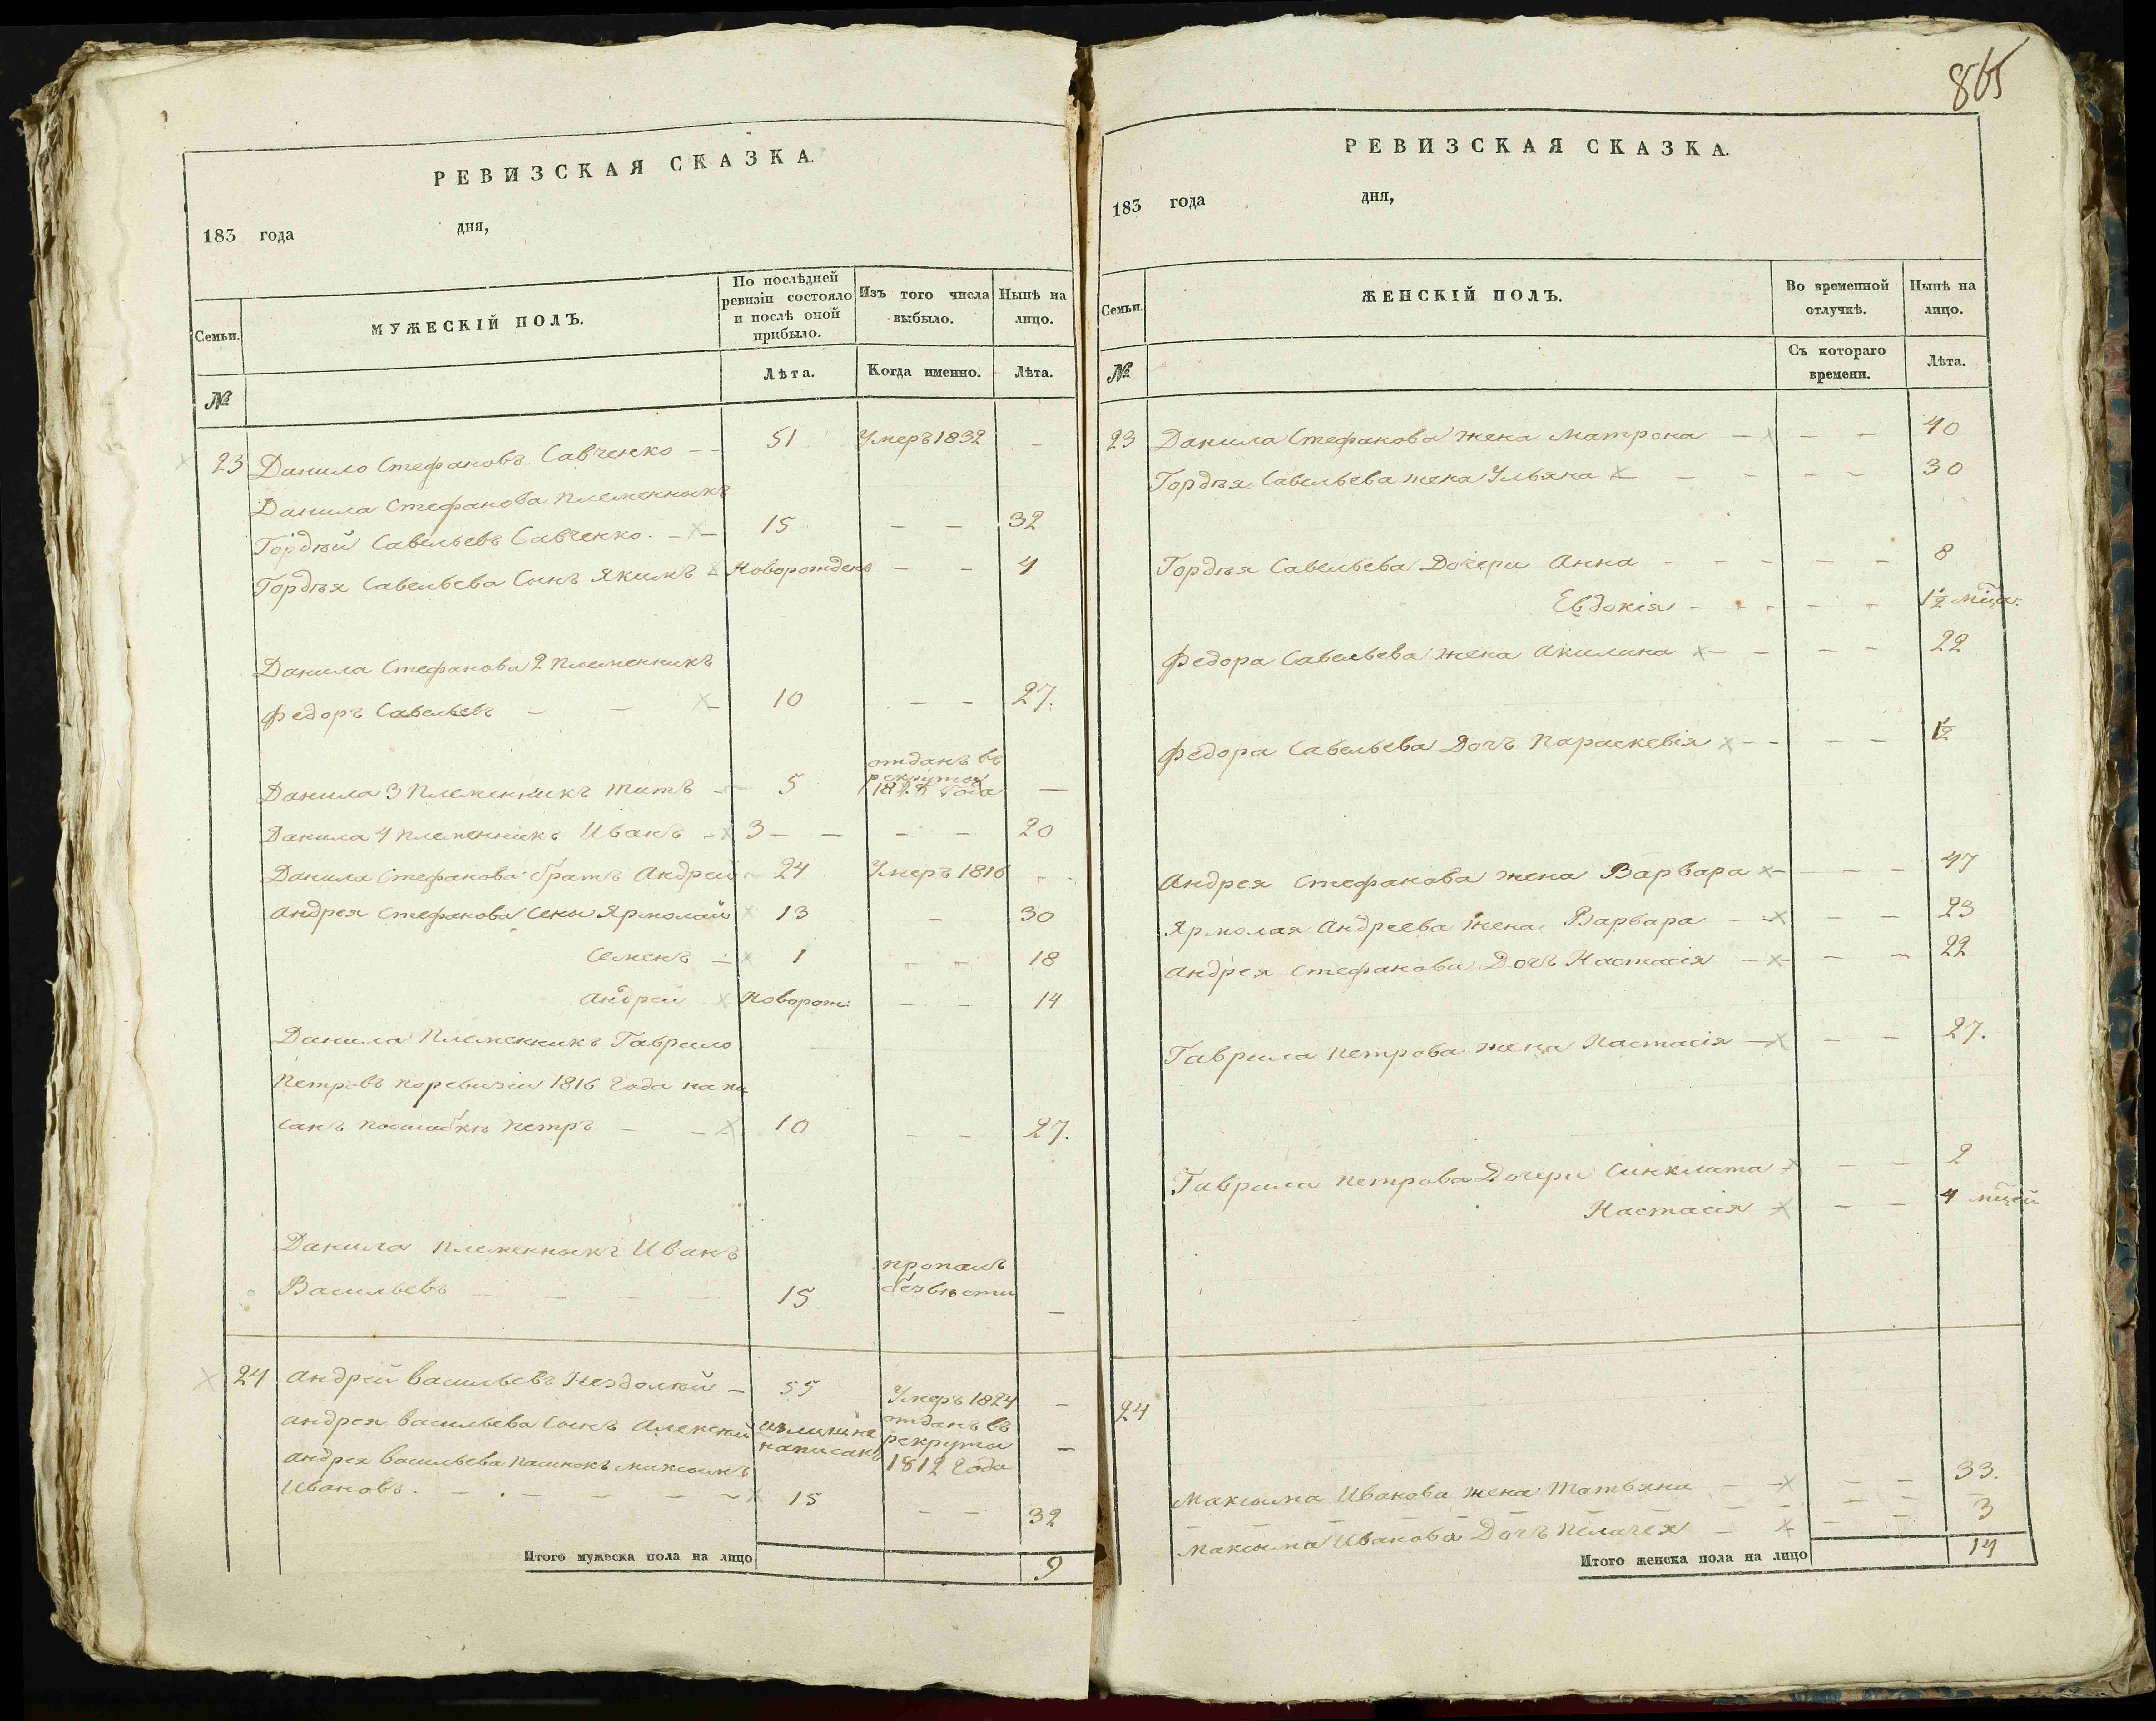 865
РЕВИЗСКАЯ СКАЗКА.
183 года дня,
Семьи.
МУЖЕСКІЙ ПОЛЪ.
По послѣдней
ревизіи состояло
и послѣ оной
прибыло.
Изъ того числа
выбыло.
Нынѣ на
лицо.
№
Лѣта.
Когда именно.
Лѣта.
23 Данило Стефановъ Савченко - - 51 Умеръ 1832 -
Данила Стефанова племенныкъ
Гордѣй Савельевъ Савченко. - - 15 - - 32
Гордѣя Савельева Сынъ Якимъ - Новорожденъ - - 4
Данила Стефанова 2 племенникъ
Федоръ Савельевъ - - - 10 - - 27.
отданъ въ
рекруты
Данила 3 племенникъ Титъ - 5 года -
Данила 4 племенникъ Иванъ - 3 - - - - 20
Данила Стефанова братъ Андрей - 24 Умеръ 1816 -
Андрея Стефанова Сены Ярмолай 13 - 30
Семенъ - 1 - - 18
Андрей - Новорож: - - 14
Данила племенникъ Гаврило
Петровъ поревизіи 1816 года напи
санъ Петръ - - 10 - - 27.
Данила племенныкъ Иванъ
пропалъ
Васильевъ - - - - 15 безвѣсти -
24 Андрей Васильевъ Нездолѣй - 55 Умеръ 1824 -
Андрея Васильева Сынъ Алексѣй написанъ отданъ въ рекруты 1812 года -
Андрея Васильева пасынокъ Максимъ
Ивановъ. - - - - - 15 - - 32
Итого мужеска пола на лицо 9
РЕВИЗСКАЯ СКАЗКА.
183 года дня,
Семьи.
ЖЕНСКІЙ ПОЛЪ.
Во временной
отлучкѣ.
Нынѣ на
лицо.
№
Съ котораго
времени.
Лѣта.
23 Данила Стефанова жена Матрона - - - 40
Гордѣя Савельева жена Ульяна - - - - - 30
Гордѣя Савельева Дочери Анна - - - - - 8
Евдокія - - - - - 1½ мѣца:
Федора Савельева жена Акилина - - - - 22
Федора Савельева Дочь Параскевія - - - - 1½
Андрея Стефанова жена Варвара - - - - 47
Ярмолая Андреева жена Варвара - - - - 23
Андрея Стефанова Дочь Настасія - - - - 22
Гаврила Петрова жена Настасія - - - 27.
Гаврила Петрова Дочери Синклита - - - 2
Настасія - - - 4 мѣцей
24
Максима Иванова жена Татьяна - - - - 33.
Максима Иванова Дочь Пелагея - - - - 3
Итого женска пола на лицо 14